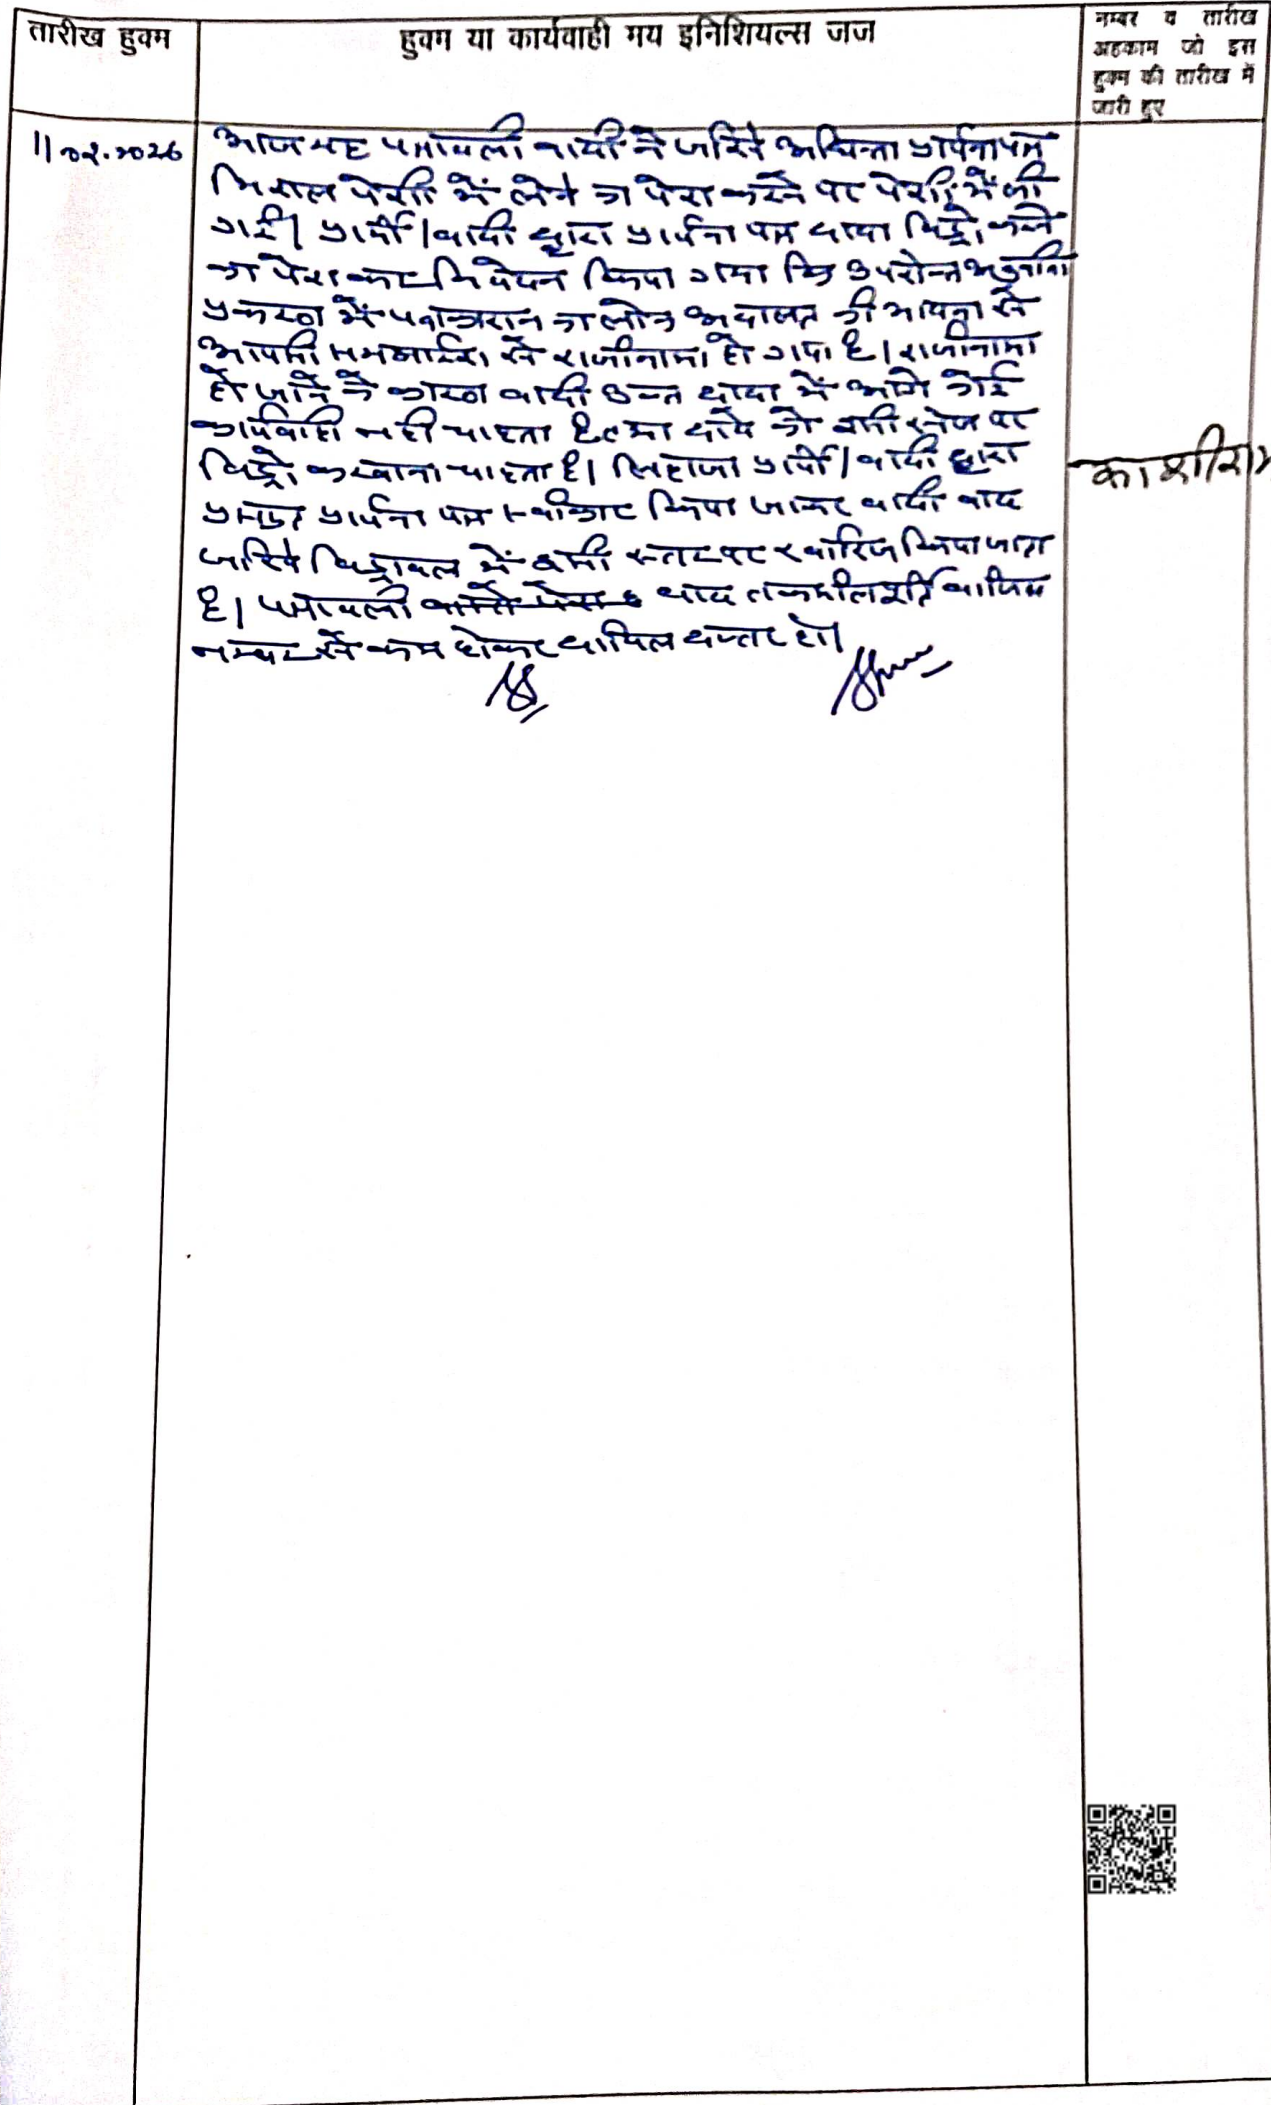 तारीख हुक्म
हुक्म या कार्यवाही मय इनिशियल्स जज
नम्बर व तारीख
अहकाम जो इस
हुक्म की तारीख में
जारी हुए
11.02.2026
आज यह पत्रावली वादी ने जरिये अधिवक्ता प्रार्थनापत्र
मिसल पेशी में लेने का पेश करने पर पेशी में ली
गई। प्रार्थी/वादी द्वारा प्रार्थना पत्र दावा विड्रो करने
का पेश कर निवेदन किया गया कि उपरोक्त
प्रकरण में पक्षकारान का लोक अदालत की भावना से
आपसी समझाईश से राजीनामा हो गया है। राजीनामा
हो जाने के कारण वादी उक्त दावा में आगे कोई
कार्यवाही नही चाहता है तथा दावे को इसी स्टेज पर
विड्रो करवाना चाहता है। लिहाजा प्रार्थी/वादी द्वारा
प्रस्तुत प्रार्थना पत्र स्वीकार किया जाकर वादी वाद
जरिये विड्रावल में इसी स्तर पर खारिज किया जाता
है। पत्रावली वास्ते पेश बाद तकमील
नम्बर से कम होकर दाखिल दफ्तर हो।
काशीराम